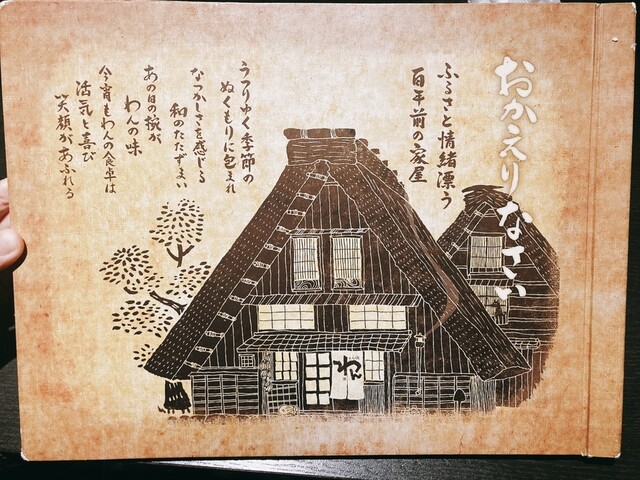 おかえりなさい
ふるさと情緒漂う
百年前の家屋
うつりゆく季節の
ぬくもりに包まれ
なつかしさを感じる
和のたたずまい
あの日の椀が
わんの味
今宵もわんの食卓は
活気と喜び
笑顔があふれる
わん